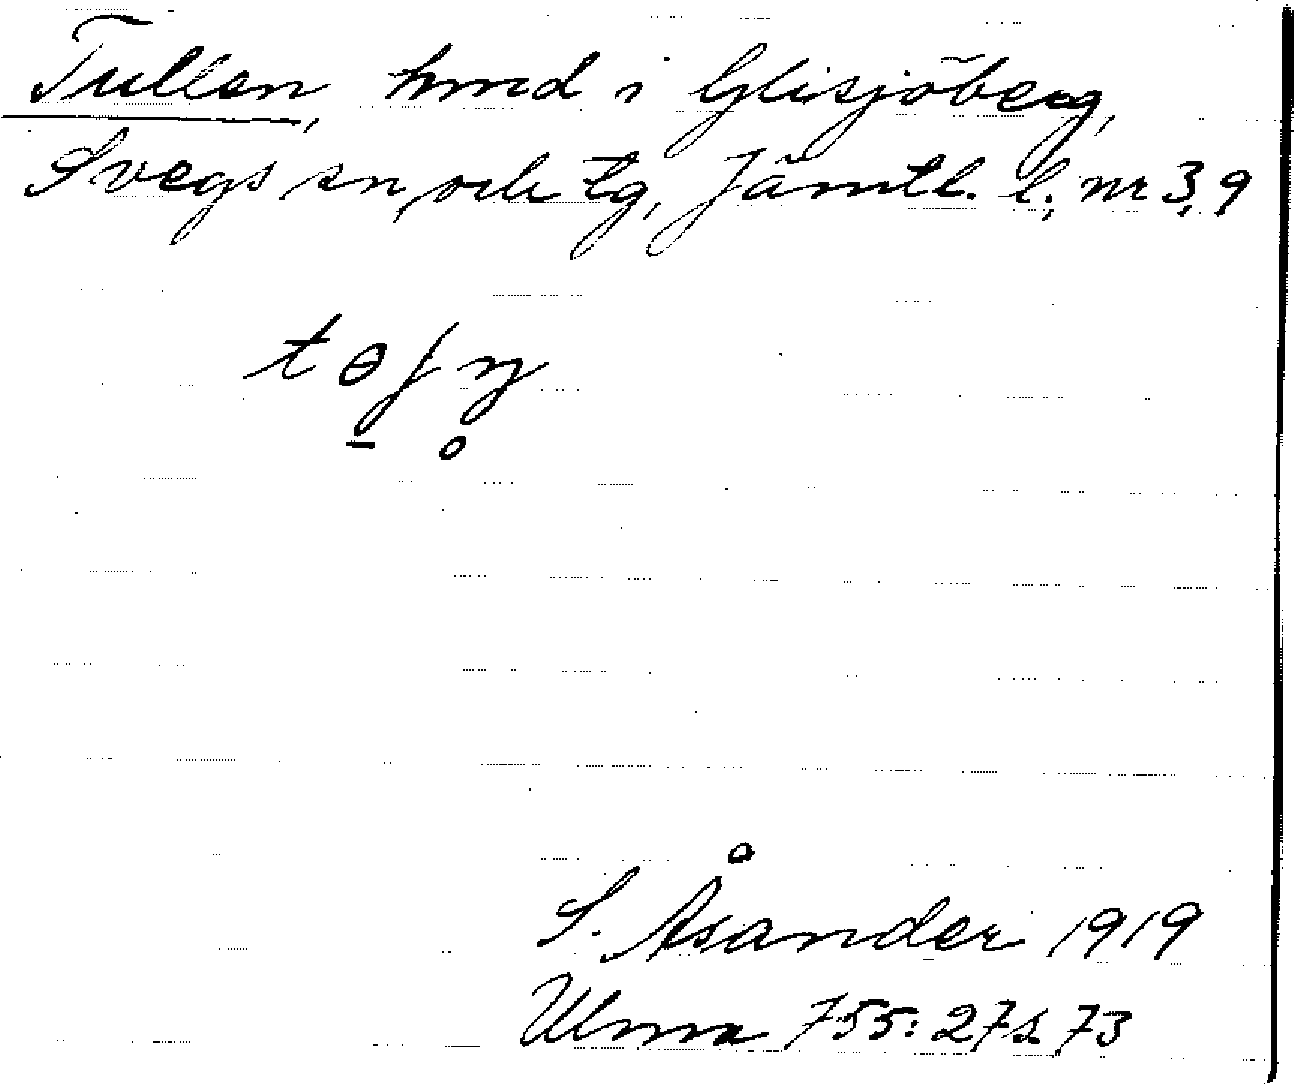 Tullen, hmd i Glisjöberg,
Svegs sn, och tg, Jämtl. l., nr 3, 9
S. Åsander 1919
Ulma 755:27 s. 73